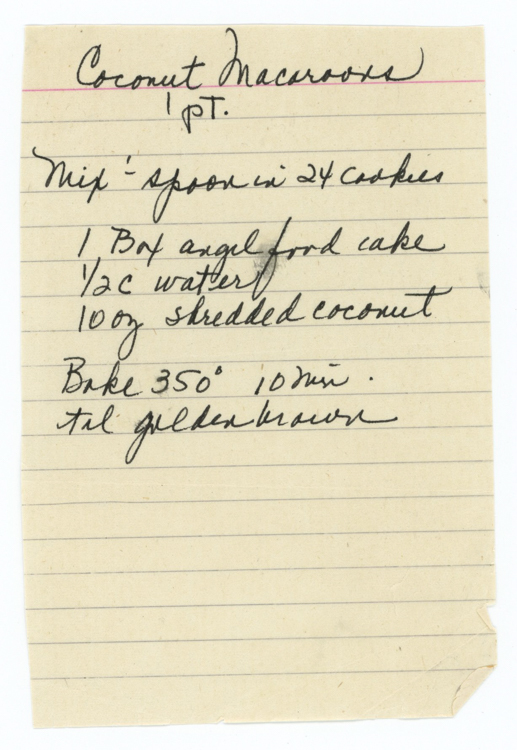 Coconut Macaroons
1 pt.
Mix - spoon in 24 cookies
1 Box angel food cake
1/2 c water
10 oz shredded coconut
Bake 350° 10 min.
til golden brown